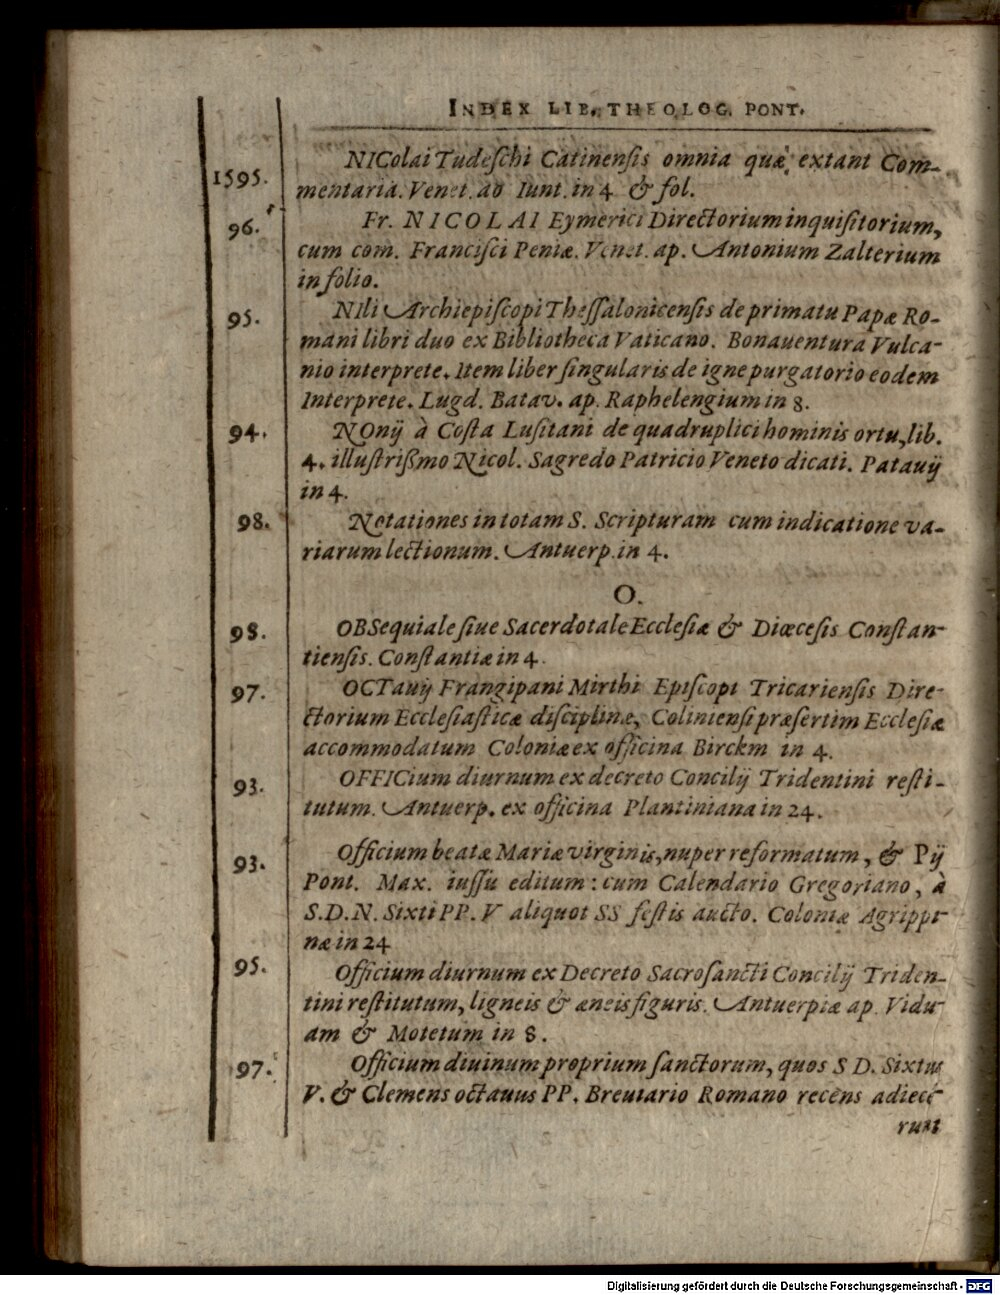 INDEX LIB. THEOLOG. PONT.
1595. NIColai Tudeſchi Catinenſis omnia quæ extant Com-
mentaria. Venet. ad Iunt. in 4 & fol.
96. Fr. NICOLAI Eymerici Directorium inquiſitorium,
cum com. Franciſci Peniæ. Venet. ap. Antonium Zalterium
in folio.
95. NIli Archiepiſcopi Theſſalonicenſis de primatu Papæ Ro-
mani libri duo ex Bibliotheca Vaticano. Bonauentura Vulca-
nio interprete. Item liber ſingularis de igne purgatorio eodem
Interprete. Lugd. Batav. ap. Raphelengium in 8.
94. NOnij à Coſta Luſitani de quadruplici hominis ortu, lib.
4. illuſtrißmo Nicol. Sagredo Patricio Veneto dicati. Patauij
in 4.
98. Notationes in totam S. Scripturam cum indicatione va-
riarum lectionum. Antuerp. in 4.
O.
98. OBSequiale ſiue Sacerdotale Eccleſiæ & Diœceſis Conſtan-
tienſis. Conſtantiæ in 4.
97. OCTauij Frangipani Mirthi Epiſcopi Tricarienſis Dire-
ctorium Eccleſiaſticæ diſciplinæ, Colinienſi præſertim Eccleſiæ
accommodatum Coloniæ ex officina Birckm in 4.
93. OFFICium diurnum ex decreto Concilij Tridentini reſti-
tutum. Antuerp. ex officina Plantiniana in 24.
93. Officium beatæ Mariæ virginis, nuper reformatum, & Pij
Pont. Max. iuſſu editum: cum Calendario Gregoriano, à
S.D.N. Sixti PP. V aliquot SS feſtis aucto. Coloniæ Agrippi-
næ in 24
95. Officium diurnum ex Decreto Sacroſancti Concilij Triden-
tini reſtitutum, ligneis & æneis figuris. Antuerpiæ ap. Vidu-
am & Motetum in 8.
97. Officium diuinum proprium ſanctorum, quos S D. Sixtus
V. & Clemens octauus PP. Breuiario Romano recens adiece-
runt
Digitalisierung gefördert durch die Deutsche Forschungsgemeinschaft - DFG